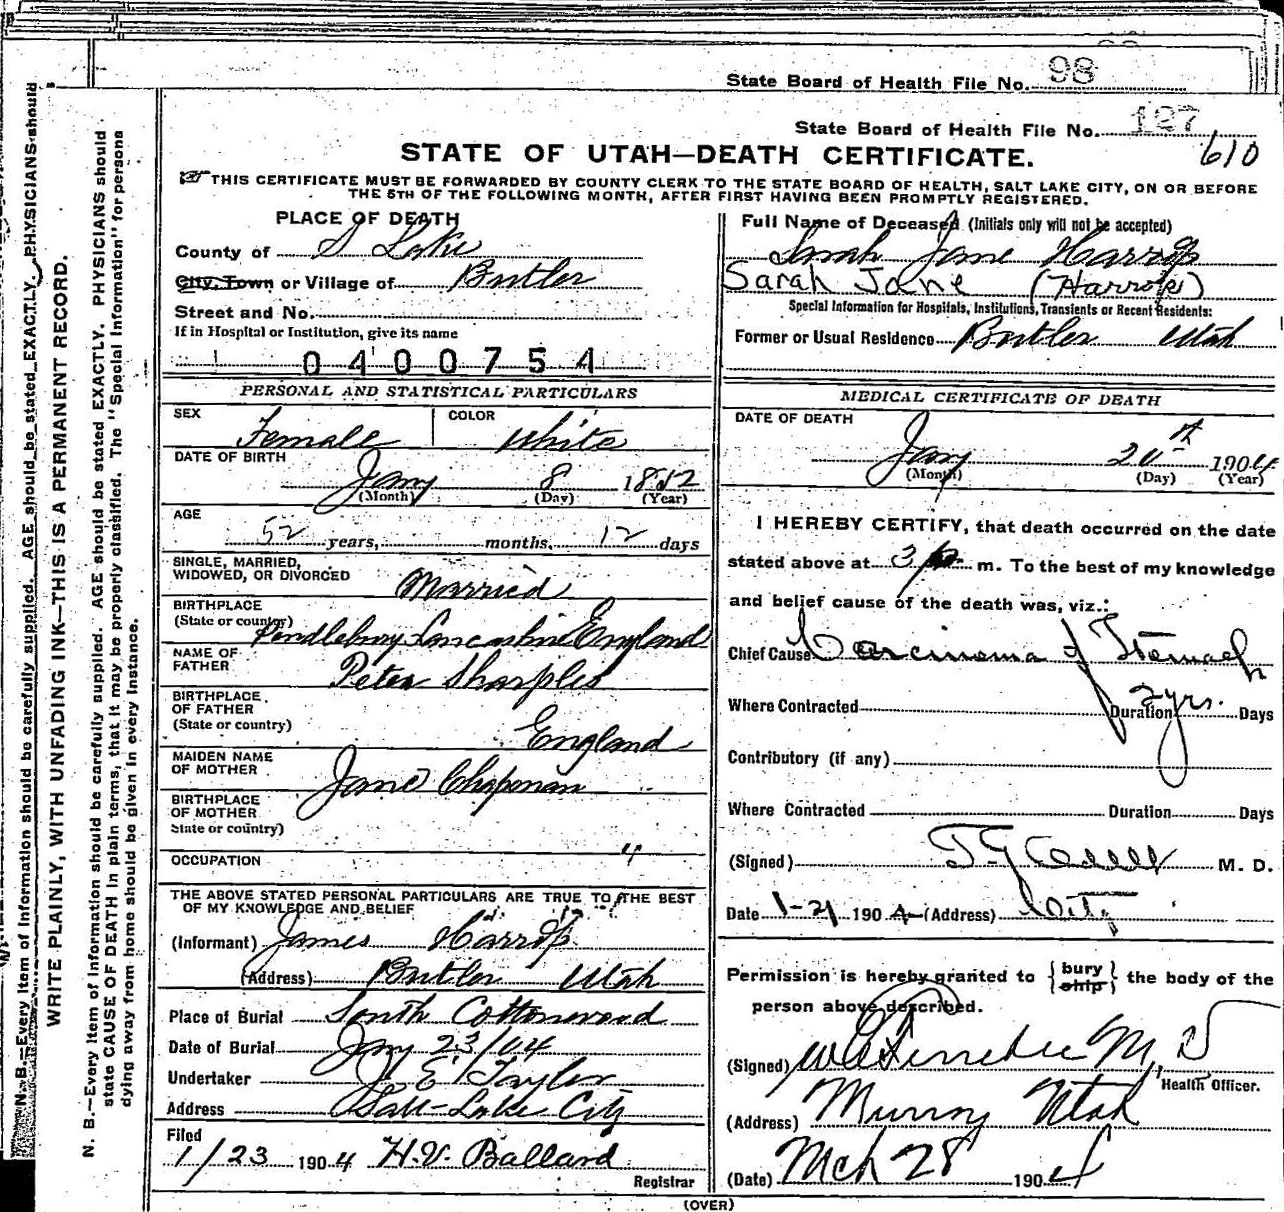 State Board of Health File No. 98
State Board of Health File No. 127
610
STATE OF UTAH—DEATH CERTIFICATE.
THIS CERTIFICATE MUST BE FORWARDED BY COUNTY CLERK TO THE STATE BOARD OF HEALTH, SALT LAKE CITY, ON OR BEFORE
THE 5TH OF THE FOLLOWING MONTH, AFTER FIRST HAVING BEEN PROMPTLY REGISTERED.
PLACE OF DEATH
County of S Lake
City, Town or Village of Butler
Street and No.
If in Hospital or Institution, give its name
0400754
PERSONAL AND STATISTICAL PARTICULARS
SEX Female COLOR White
DATE OF BIRTH
Jany 8 1852
(Month) (Day) (Year)
AGE
52 years, months, 12 days
SINGLE, MARRIED,
WIDOWED, OR DIVORCED Married
BIRTHPLACE
(State or country) Pendlebury Lancashire England
NAME OF
FATHER Peter Sharples
BIRTHPLACE
OF FATHER
(State or country) England
MAIDEN NAME
OF MOTHER Jane Chapman
BIRTHPLACE
OF MOTHER
State or country)
OCCUPATION
THE ABOVE STATED PERSONAL PARTICULARS ARE TRUE TO THE BEST
OF MY KNOWLEDGE AND BELIEF
(Informant) James Harrop
(Address) Butler Utah
Place of Burial South Cottonwood
Date of Burial Jany 23/04
Undertaker E. Taylor
Address Salt Lake City
Filed
1/23 1904 H.V. Ballard
Registrar
Full Name of Deceased (Initials only will not be accepted)
Sarah Jane Harrop
Sarah Jane (Harrop)
Special Information for Hospitals, Institutions, Transients or Recent Residents:
Former or Usual Residence Butler Utah
MEDICAL CERTIFICATE OF DEATH
DATE OF DEATH
Jany 20th 1904
(Month) (Day) (Year)
I HEREBY CERTIFY, that death occurred on the date
stated above at 3 p. m. To the best of my knowledge
and belief cause of the death was, viz.:
Chief Cause Carcinoma of Stomach
Where Contracted Duration 2 yrs. Days
Contributory (if any)
Where Contracted Duration Days
(Signed) M. D.
Date 1-21 1904 (Address) City
Permission is hereby granted to { bury ship } the body of the
person above described.
(Signed) M, D
Health Officer.
(Address) Murray Utah
(Date) Mch 28 1904
(OVER)
N. B.—Every item of Information should be carefully supplied. AGE should be stated EXACTLY. PHYSICIANS should
WRITE PLAINLY, WITH UNFADING INK—THIS IS A PERMANENT RECORD.
N. B.—Every item of information should be carefully supplied. AGE should be stated EXACTLY. PHYSICIANS should
state CAUSE OF DEATH in plain terms, that it may be properly classified. The "Special Information" for persons
dying away from home should be given in every instance.